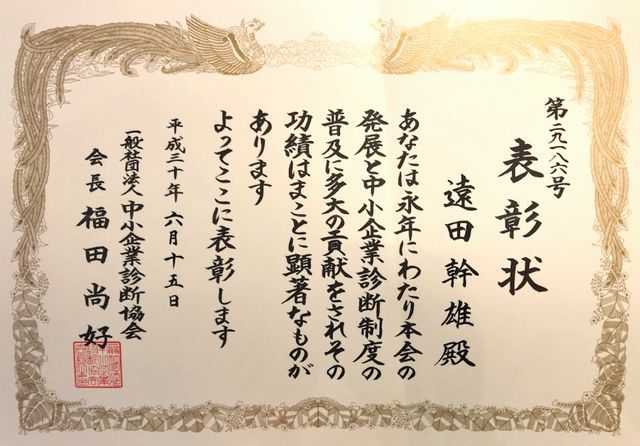 第二九一八六号
表彰状
遠田幹雄殿
あなたは永年にわたり本会の
発展と中小企業診断制度の
普及に多大の貢献をされその
功績はまことに顕著なものが
あります
よってここに表彰します
平成三十年六月十五日
一般社団法人中小企業診断協会
会長 福田尚好